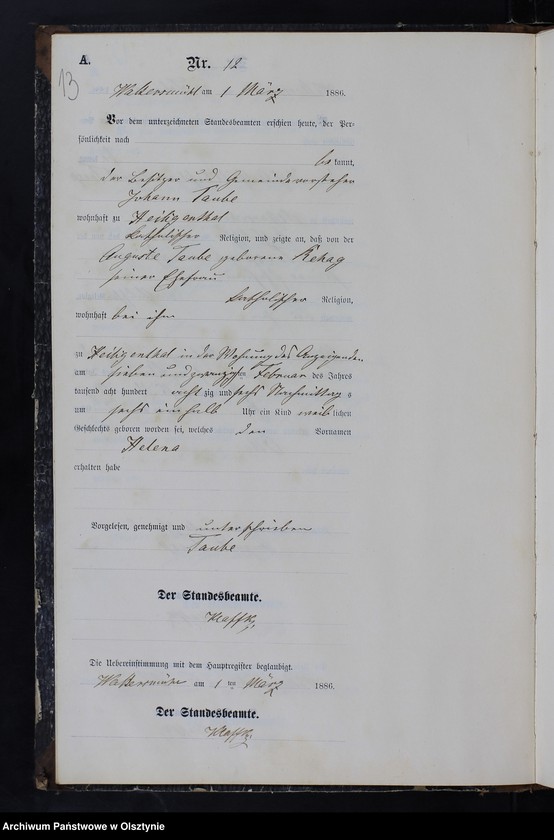 A.
Nr. 12
13
am 1 März 1886.
Vor dem unterzeichneten Standesbeamten erschien heute, der Per-
sönlichkeit nach
be kannt,
der Besitzer und Gemeindevorsteher
Johann Taube
wohnhaft zu Heiligenthal
katholischer Religion, und zeigte an, daß von der
Auguste Taube geborene Rehag
seiner Ehefrau
katholischer Religion,
wohnhaft bei ihm
zu Heiligenthal in der Wohnung des Anzeigenden
am sieben und zwanzigsten Februar des Jahres
tausend acht hundert acht zig und sechs Nachmittag s
um sechs einhalb Uhr ein Kind weib lichen
Geschlechts geboren worden sei, welches den Vornamen
Helena
erhalten habe
Vorgelesen, genehmigt und unterschrieben
Taube
Der Standesbeamte.
Die Uebereinstimmung mit dem Hauptregister beglaubigt.
am 1 ten März 1886.
Der Standesbeamte.
Archiwum Państwowe w Olsztynie